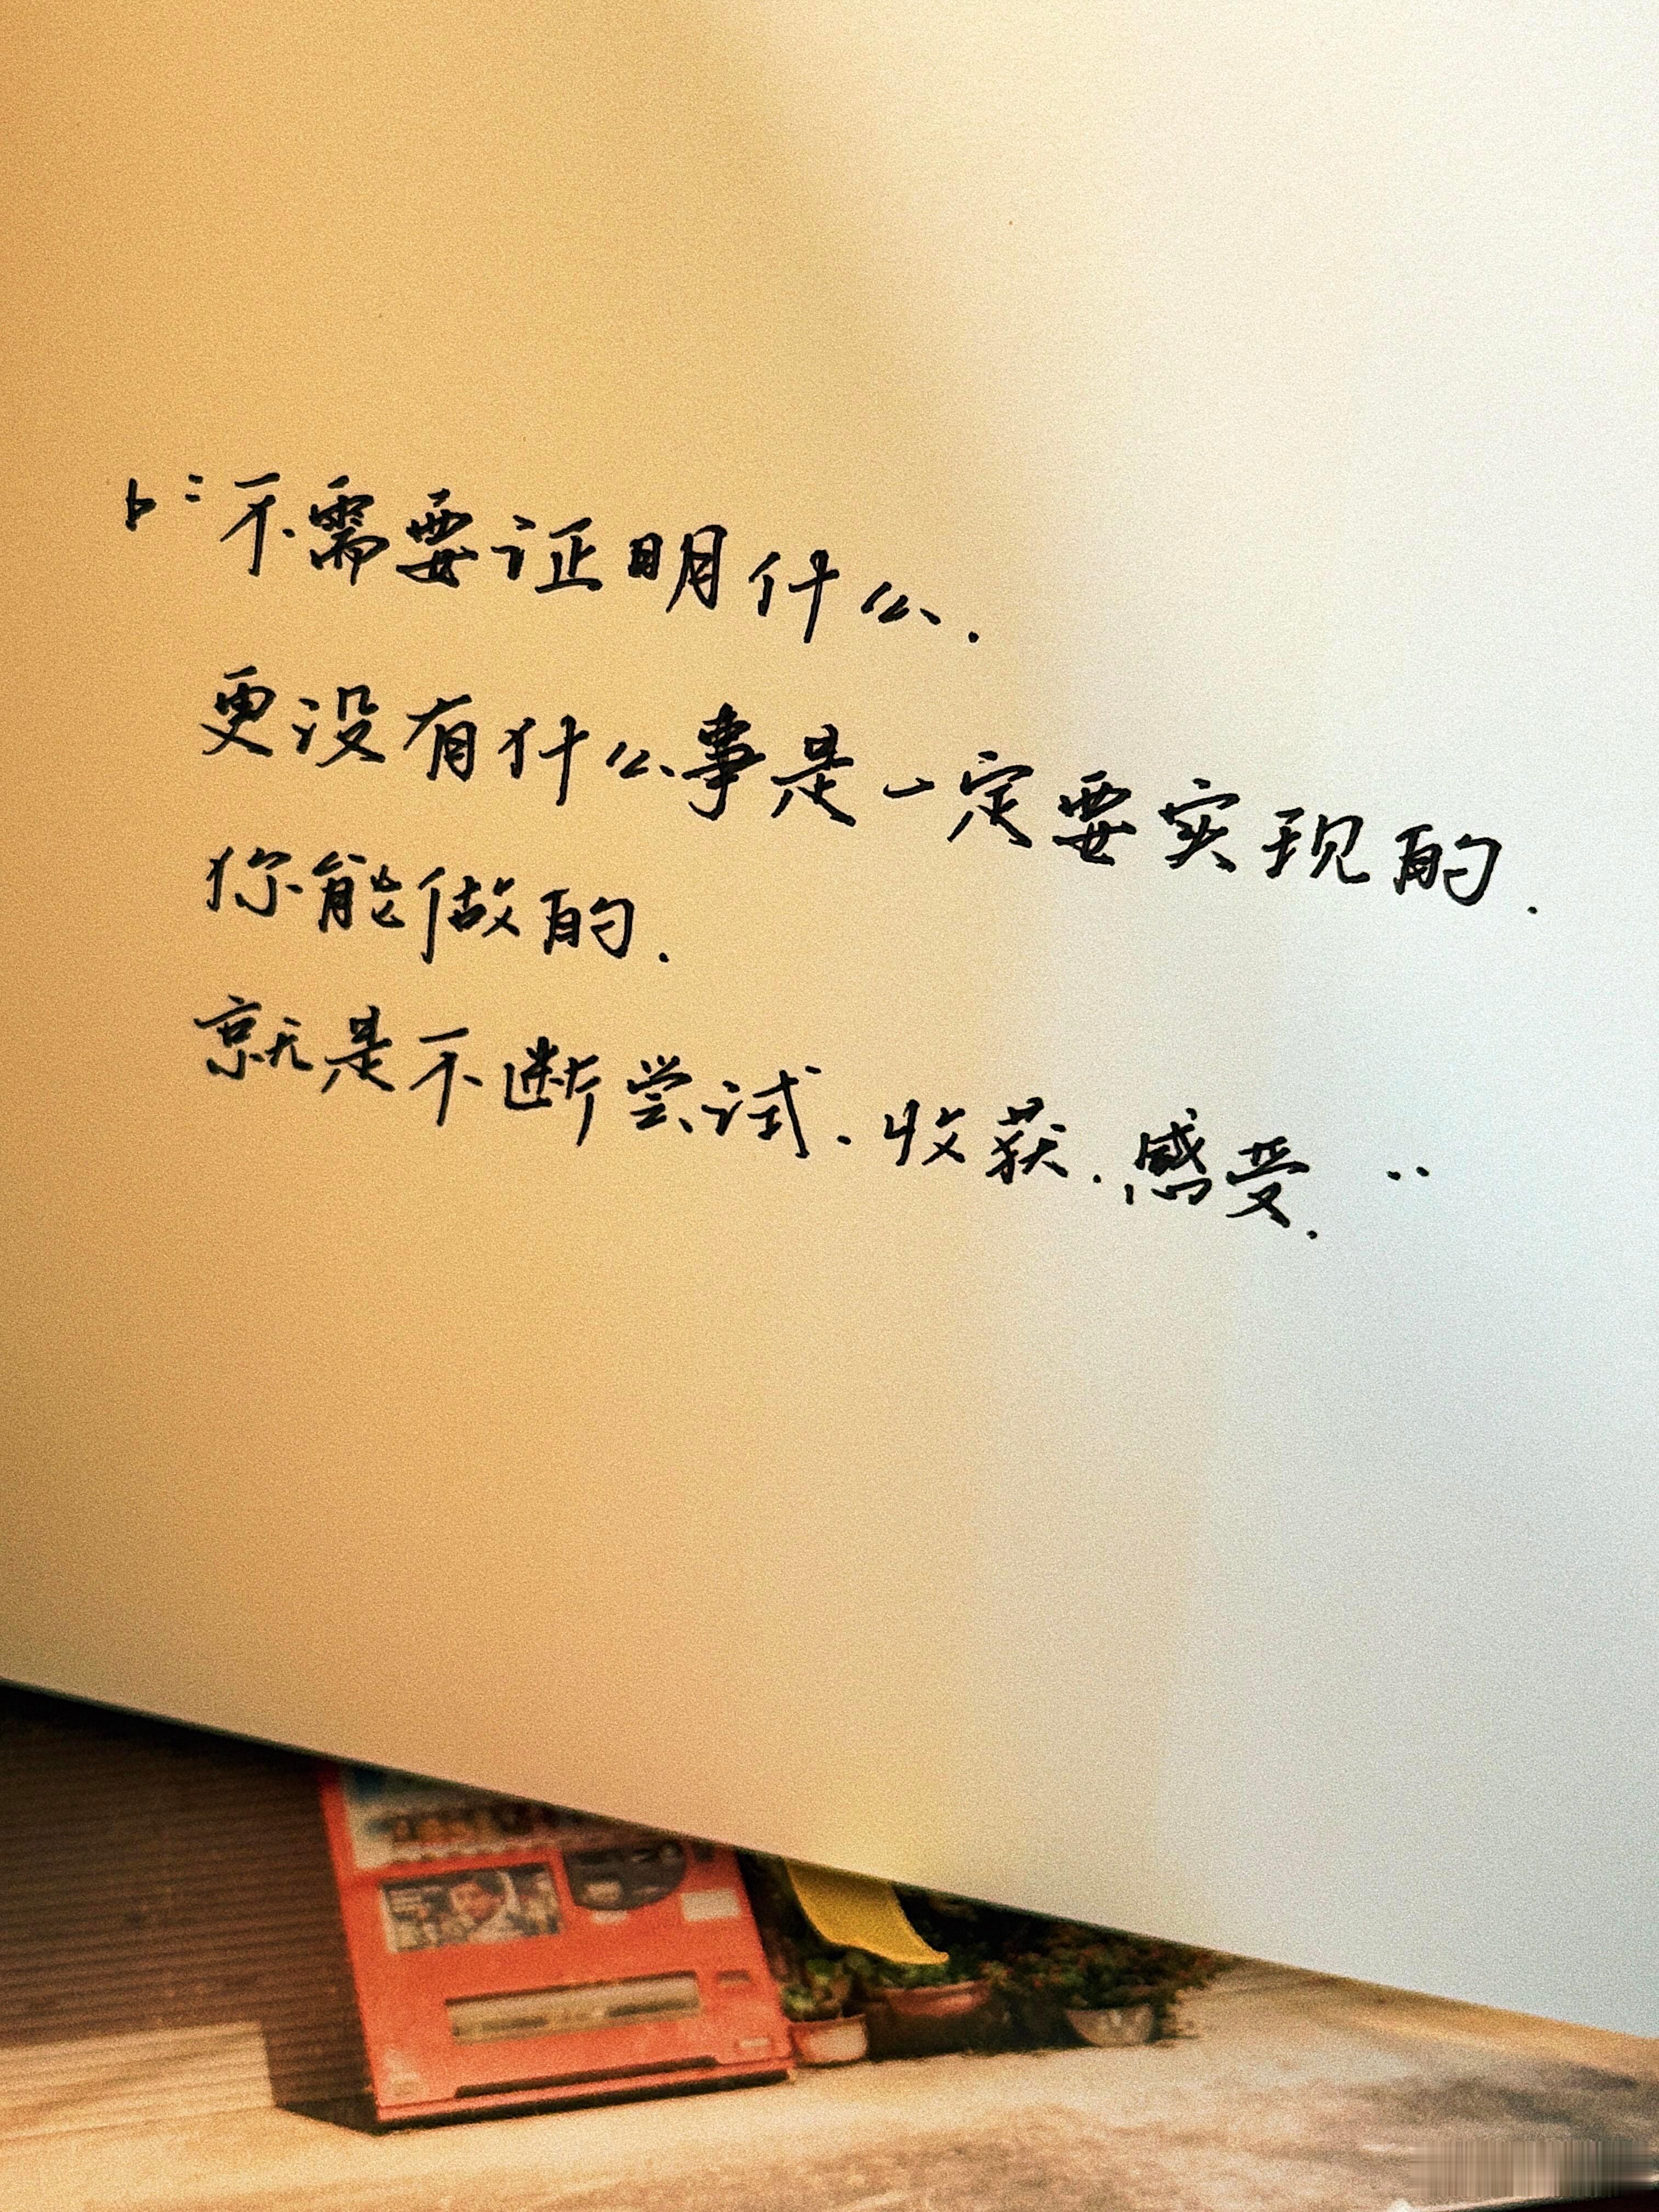 不需要证明什么.
更没有什么事是一定要实现的.
你能做的.
就是不断尝试.收获.感受. ..